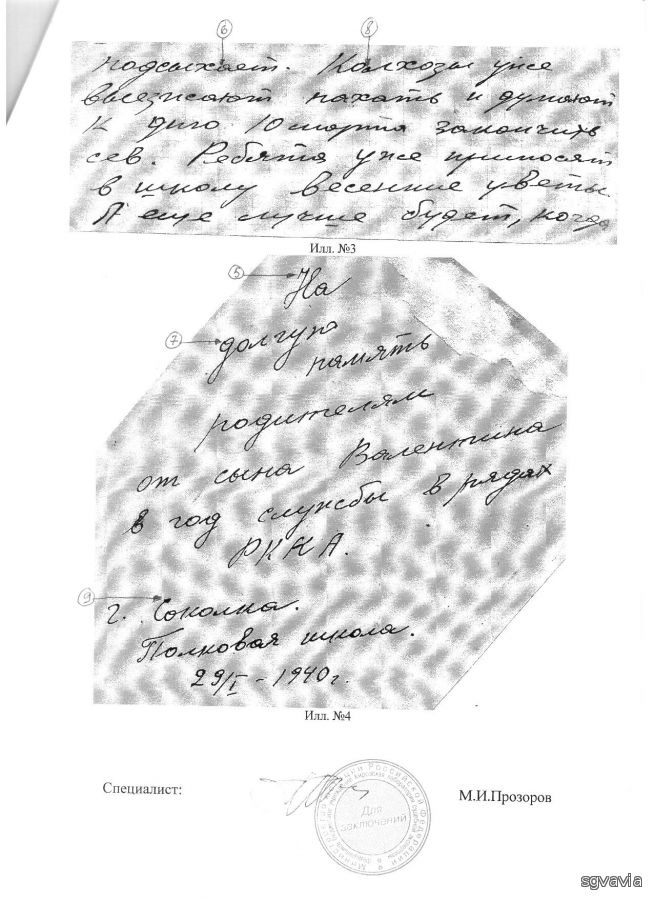 6 8
подсыхает. Колхозы уже
выезжают пахать и думают
К дню 10 марта закончить
сев. Ребята уже приносят
в школу весенние цветы.
А еще лучше будет, когда
Илл. №3
5
На
7
долгую
память
родителям
от сына Валентина
в год службы в рядах
РККА.
9
г. Соколка.
Полковая школа.
29/I - 1940 г.
Илл. №4
Специалист:
М.И.Прозоров
Для
заключений
Российской Федерации
sgvavia